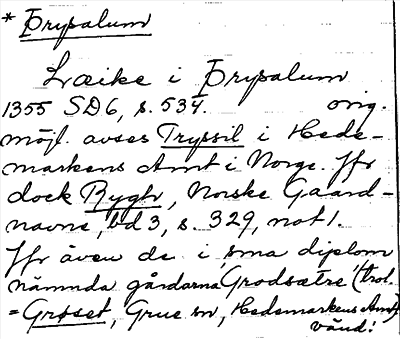 * Þrysalum
Læike i Þrysalum
1355 SD6, s. 534. orig.
möjl. avses Tryssil i Hede-
markens Amt i Norge. Jfr
dock Rygh, Norske Gaard-
navne, bd 3, s. 329, not 1.
Jfr även de i sma diplom
nämnda gårdarna Grodsætre (trol.
= Grøset, Grue sn, Hedemarkens Amt)
vänd!